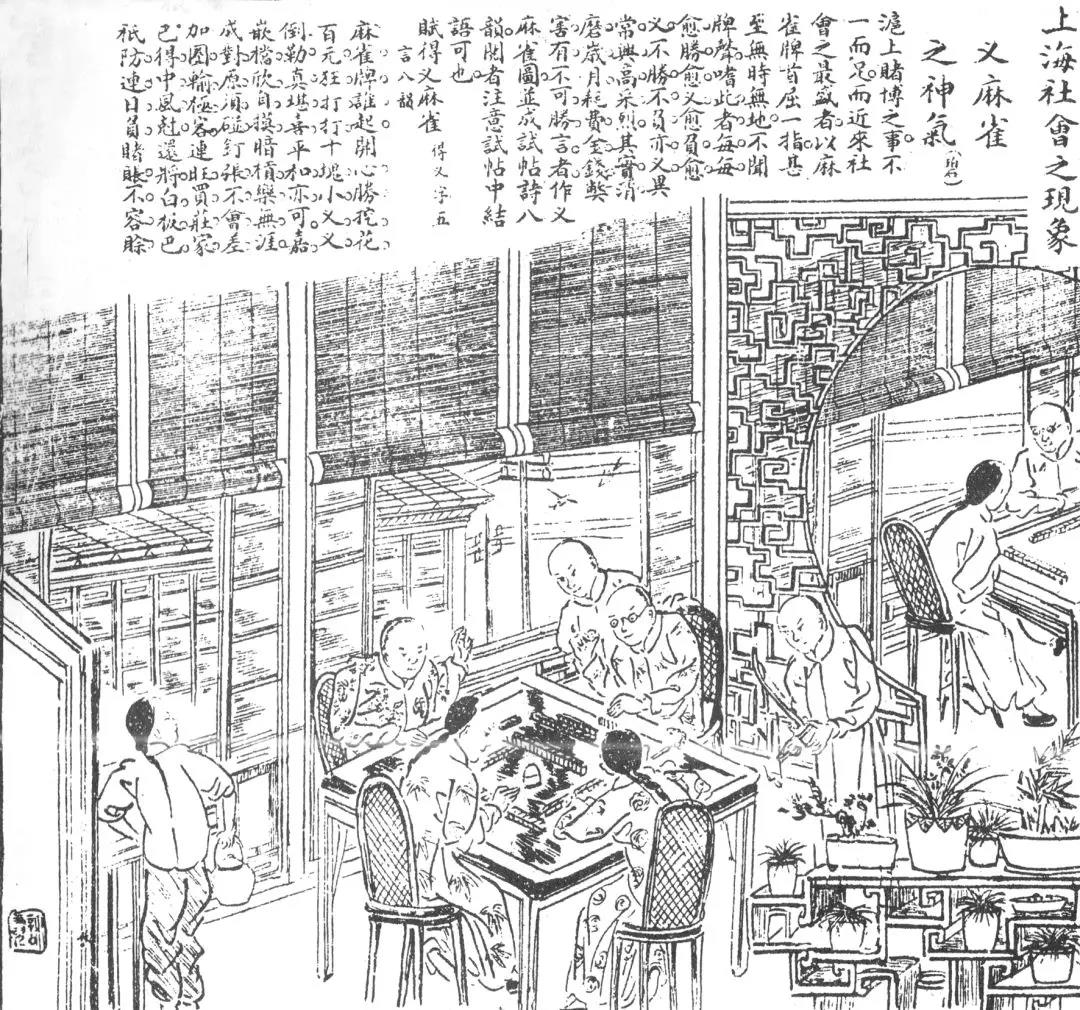 上海社會之現象
叉麻雀
之神氣
滬上賭博之事不
一而足。而近來社
會之最盛者。以麻
雀牌首屈一指。甚
至無時無地不聞
牌聲。嗜此者每每
愈勝愈叉。愈負愈
叉。不勝不負亦叉。異
常興高采烈。其實消
磨歲月。耗費金錢。獘
害有不可勝言者。作叉
麻雀圖。並成試帖詩八
韻。閱者注意試帖中結
語可也。
賦得叉麻雀 得叉字五
言八韻
麻雀牌誰起。開心勝挖花。
百元狂打打。十塊小叉叉。
倒勒真堪喜。平和亦可嘉。
嵌檔欣自摸。暗槓樂無涯。
成對原須碰。釘張不會差。
加圈輸極客。連旺買莊家。
已得中風尅。還將白板巴。
祇防連日負。賭賬不容賒。